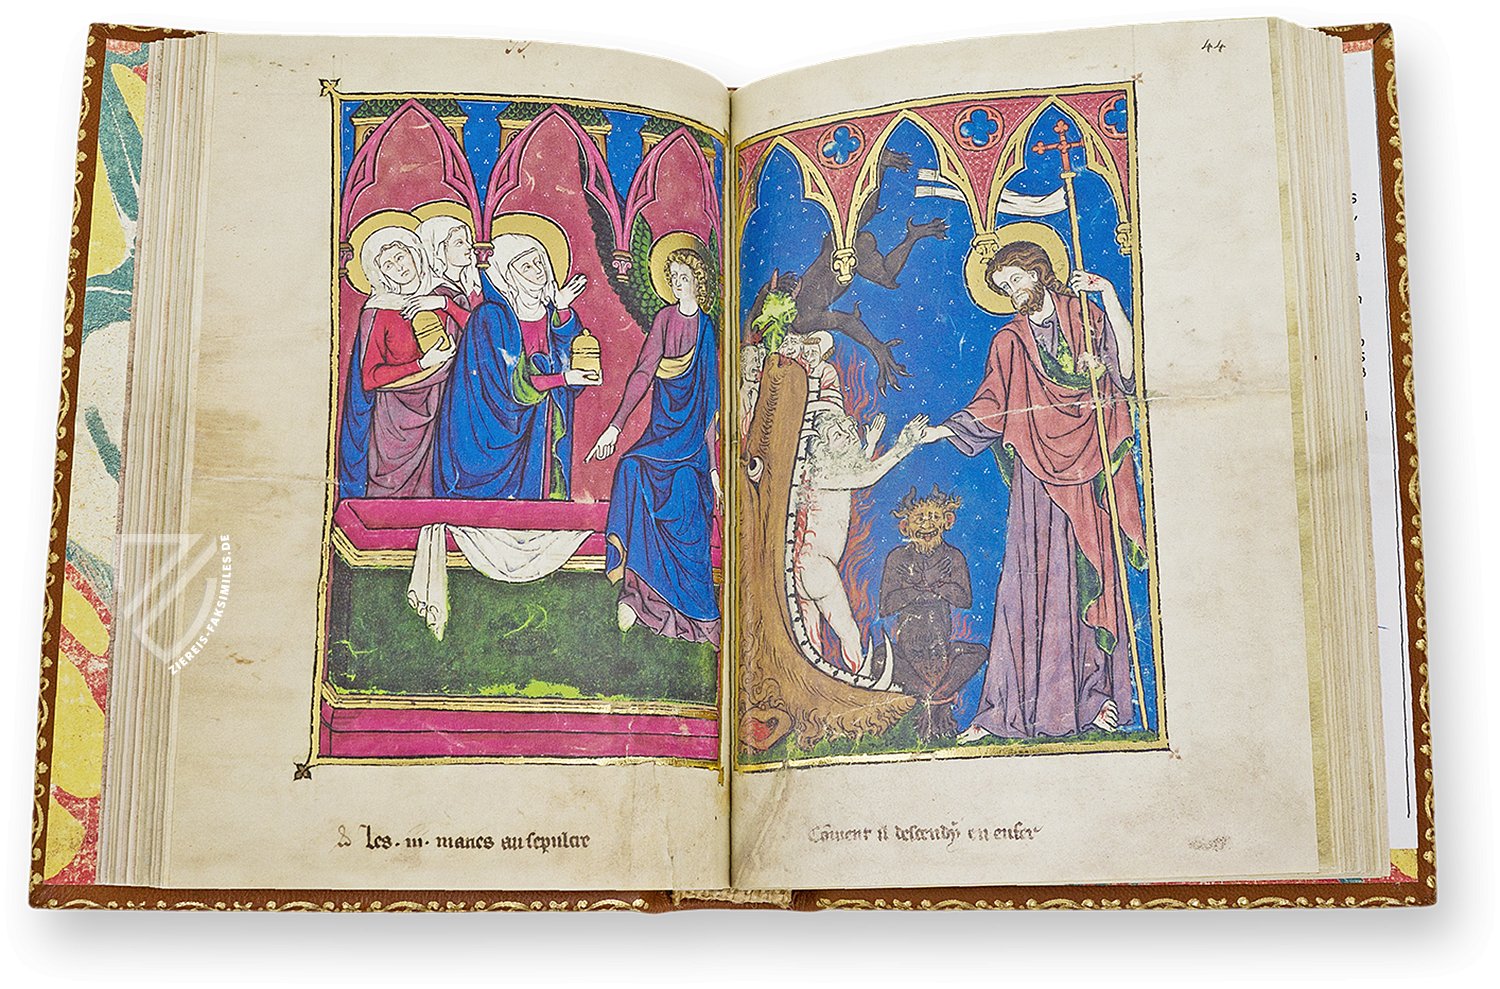 44
Les .iii. maries au sepulcre
Coment il descendy en enfer
ZIEREIS-FAKSIMILES.DE